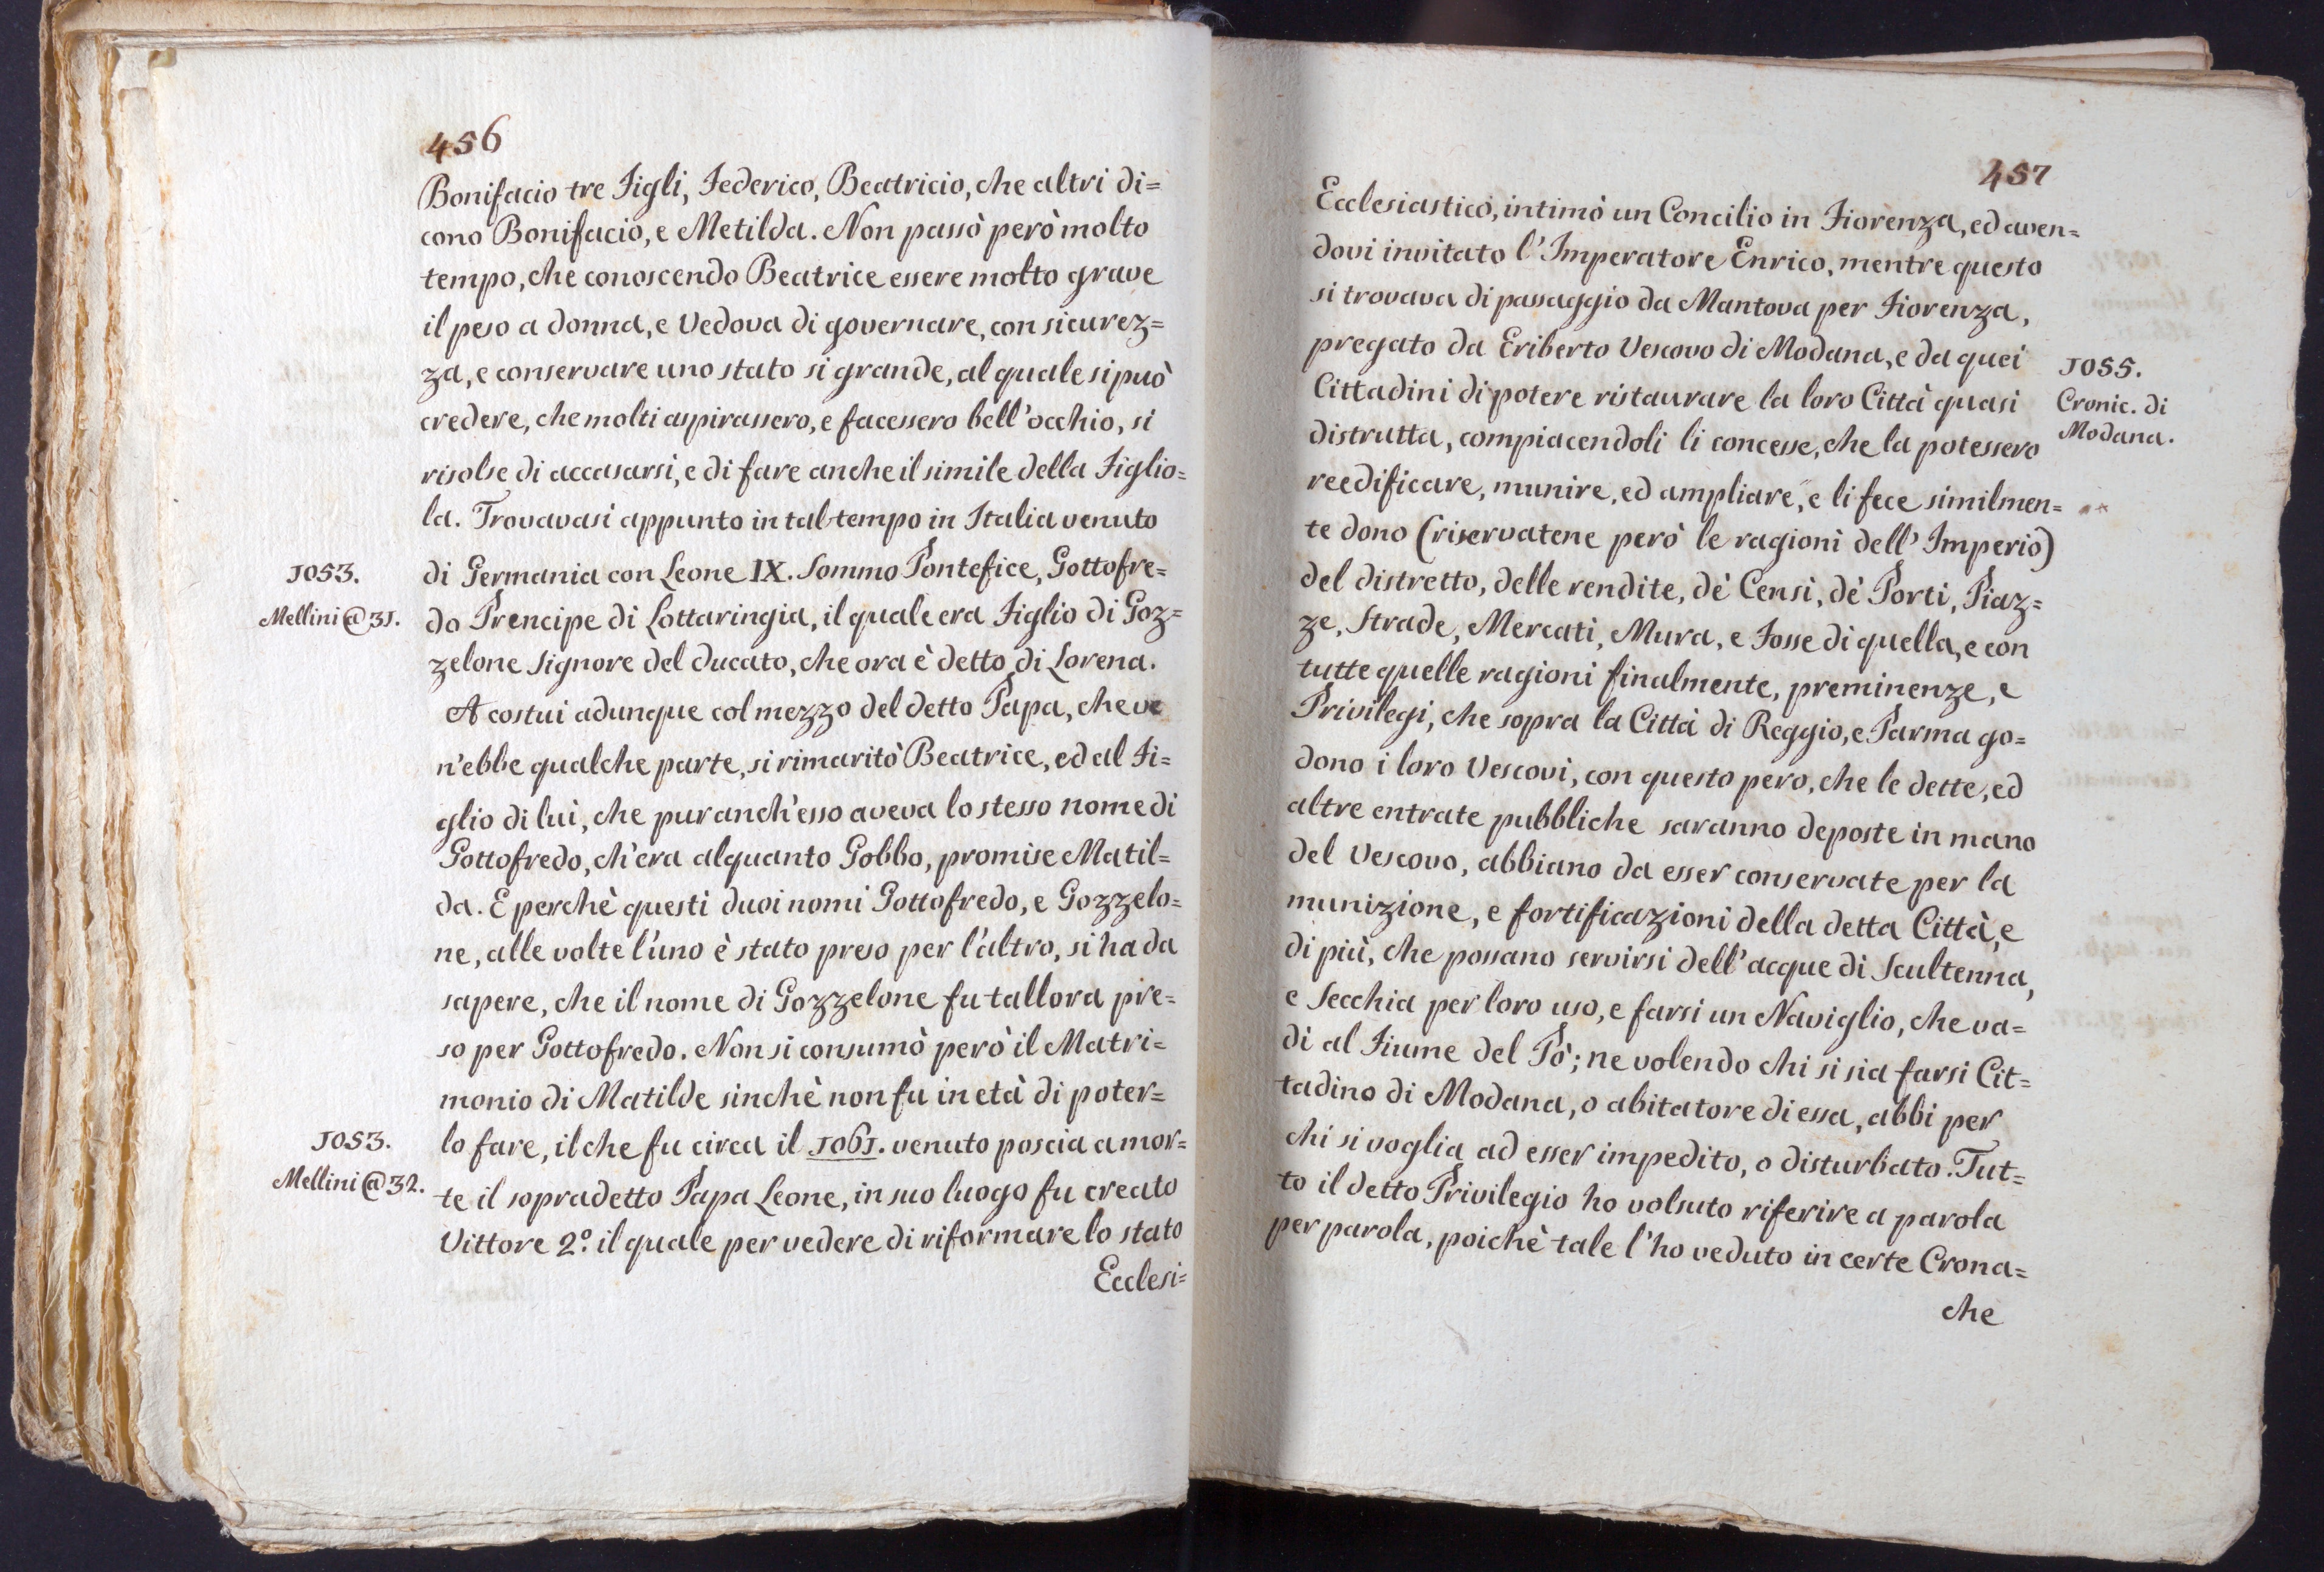 456
Bonifacio tre Figli, Federico, Beatricio, che altri di=
cono Bonifacio, e Metilda. Non passò però molto
tempo, che conoscendo Beatrice essere molto grave
il peso a donna, e Vedova di governare, con sicurez=
za, e conservare uno stato si grande, al quale si può
credere, che molti aspirassero, e facessero bell'occhio, si
risolse di accasarsi, e di fare anche il simile della Figlio=
la. Trovavasi appunto in tal tempo in Italia venuto
1053.
di Germania con Leone IX. Sommo Pontefice, Gottofre=
Mellini @ 31.
do Prencipe di Lottaringia, il quale era Figlio di Goz=
zelone Signore del Ducato, che ora è detto di Lorena.
A costui adunque col mezzo del detto Papa, che ve
n'ebbe qualche parte, si rimaritò Beatrice, ed al Fi=
glio di lui, che pur anch'esso aveva lo stesso nome di
Gottofredo, ch'era alquanto Gobbo, promise Matil=
da. E perchè questi duoi nomi Gottofredo, e Gozzelo=
ne, alle volte l'uno è stato preso per l'altro, si ha da
sapere, che il nome di Gozzelone fu tallora pre=
so per Gottofredo. Non si consumò però il Matri=
monio di Matilde sinchè non fu in età di poter=
1053.
lo fare, il che fu circa il 1061. venuto poscia a mor=
Mellini @ 32.
te il sopradetto Papa Leone, in suo luogo fu creato
Vittore 2.º il quale per vedere di riformare lo stato
Ecclesi=
457
Ecclesiastico, intimò un Concilio in Fiorenza, ed aven=
dovi invitato l'Imperatore Enrico, mentre questo
si trovava di passaggio da Mantova per Fiorenza,
pregato da Eriberto Vescovo di Modana, e da quei
1055.
Cittadini di potere ristaurare la loro Città quasi
Cronic. di
distrutta, compiacendoli li concesse, che la potessero
Modana.
reedificare, munire, ed ampliare, e li fece similmen=
te dono (riservatene però le ragioni dell'Imperio)
del distretto, delle rendite, dè Censi, dè Porti, Piaz=
ze, Strade, Mercati, Mura, e Fosse di quella, e con
tutte quelle ragioni finalmente, preminenze, e
Privilegi, che sopra la Città di Reggio, e Parma go=
dono i loro Vescovi, con questo pero, che le dette, ed
altre entrate pubbliche saranno deposte in mano
del Vescovo, abbiano da esser conservate per la
munizione, e fortificazioni della detta Città, e
di più, che possano servirsi dell'acque di Scultenna,
e Secchia per loro uso, e farsi un Naviglio, che va=
di al Fiume del Pò; ne volendo chi si sia farsi Cit=
tadino di Modana, o abitatore di essa, abbi per
chi si voglia ad esser impedito, o disturbato. Tut=
to il detto Privilegio ho volsuto riferire a parola
per parola, poichè tale l'ho veduto in certe Crona=
che